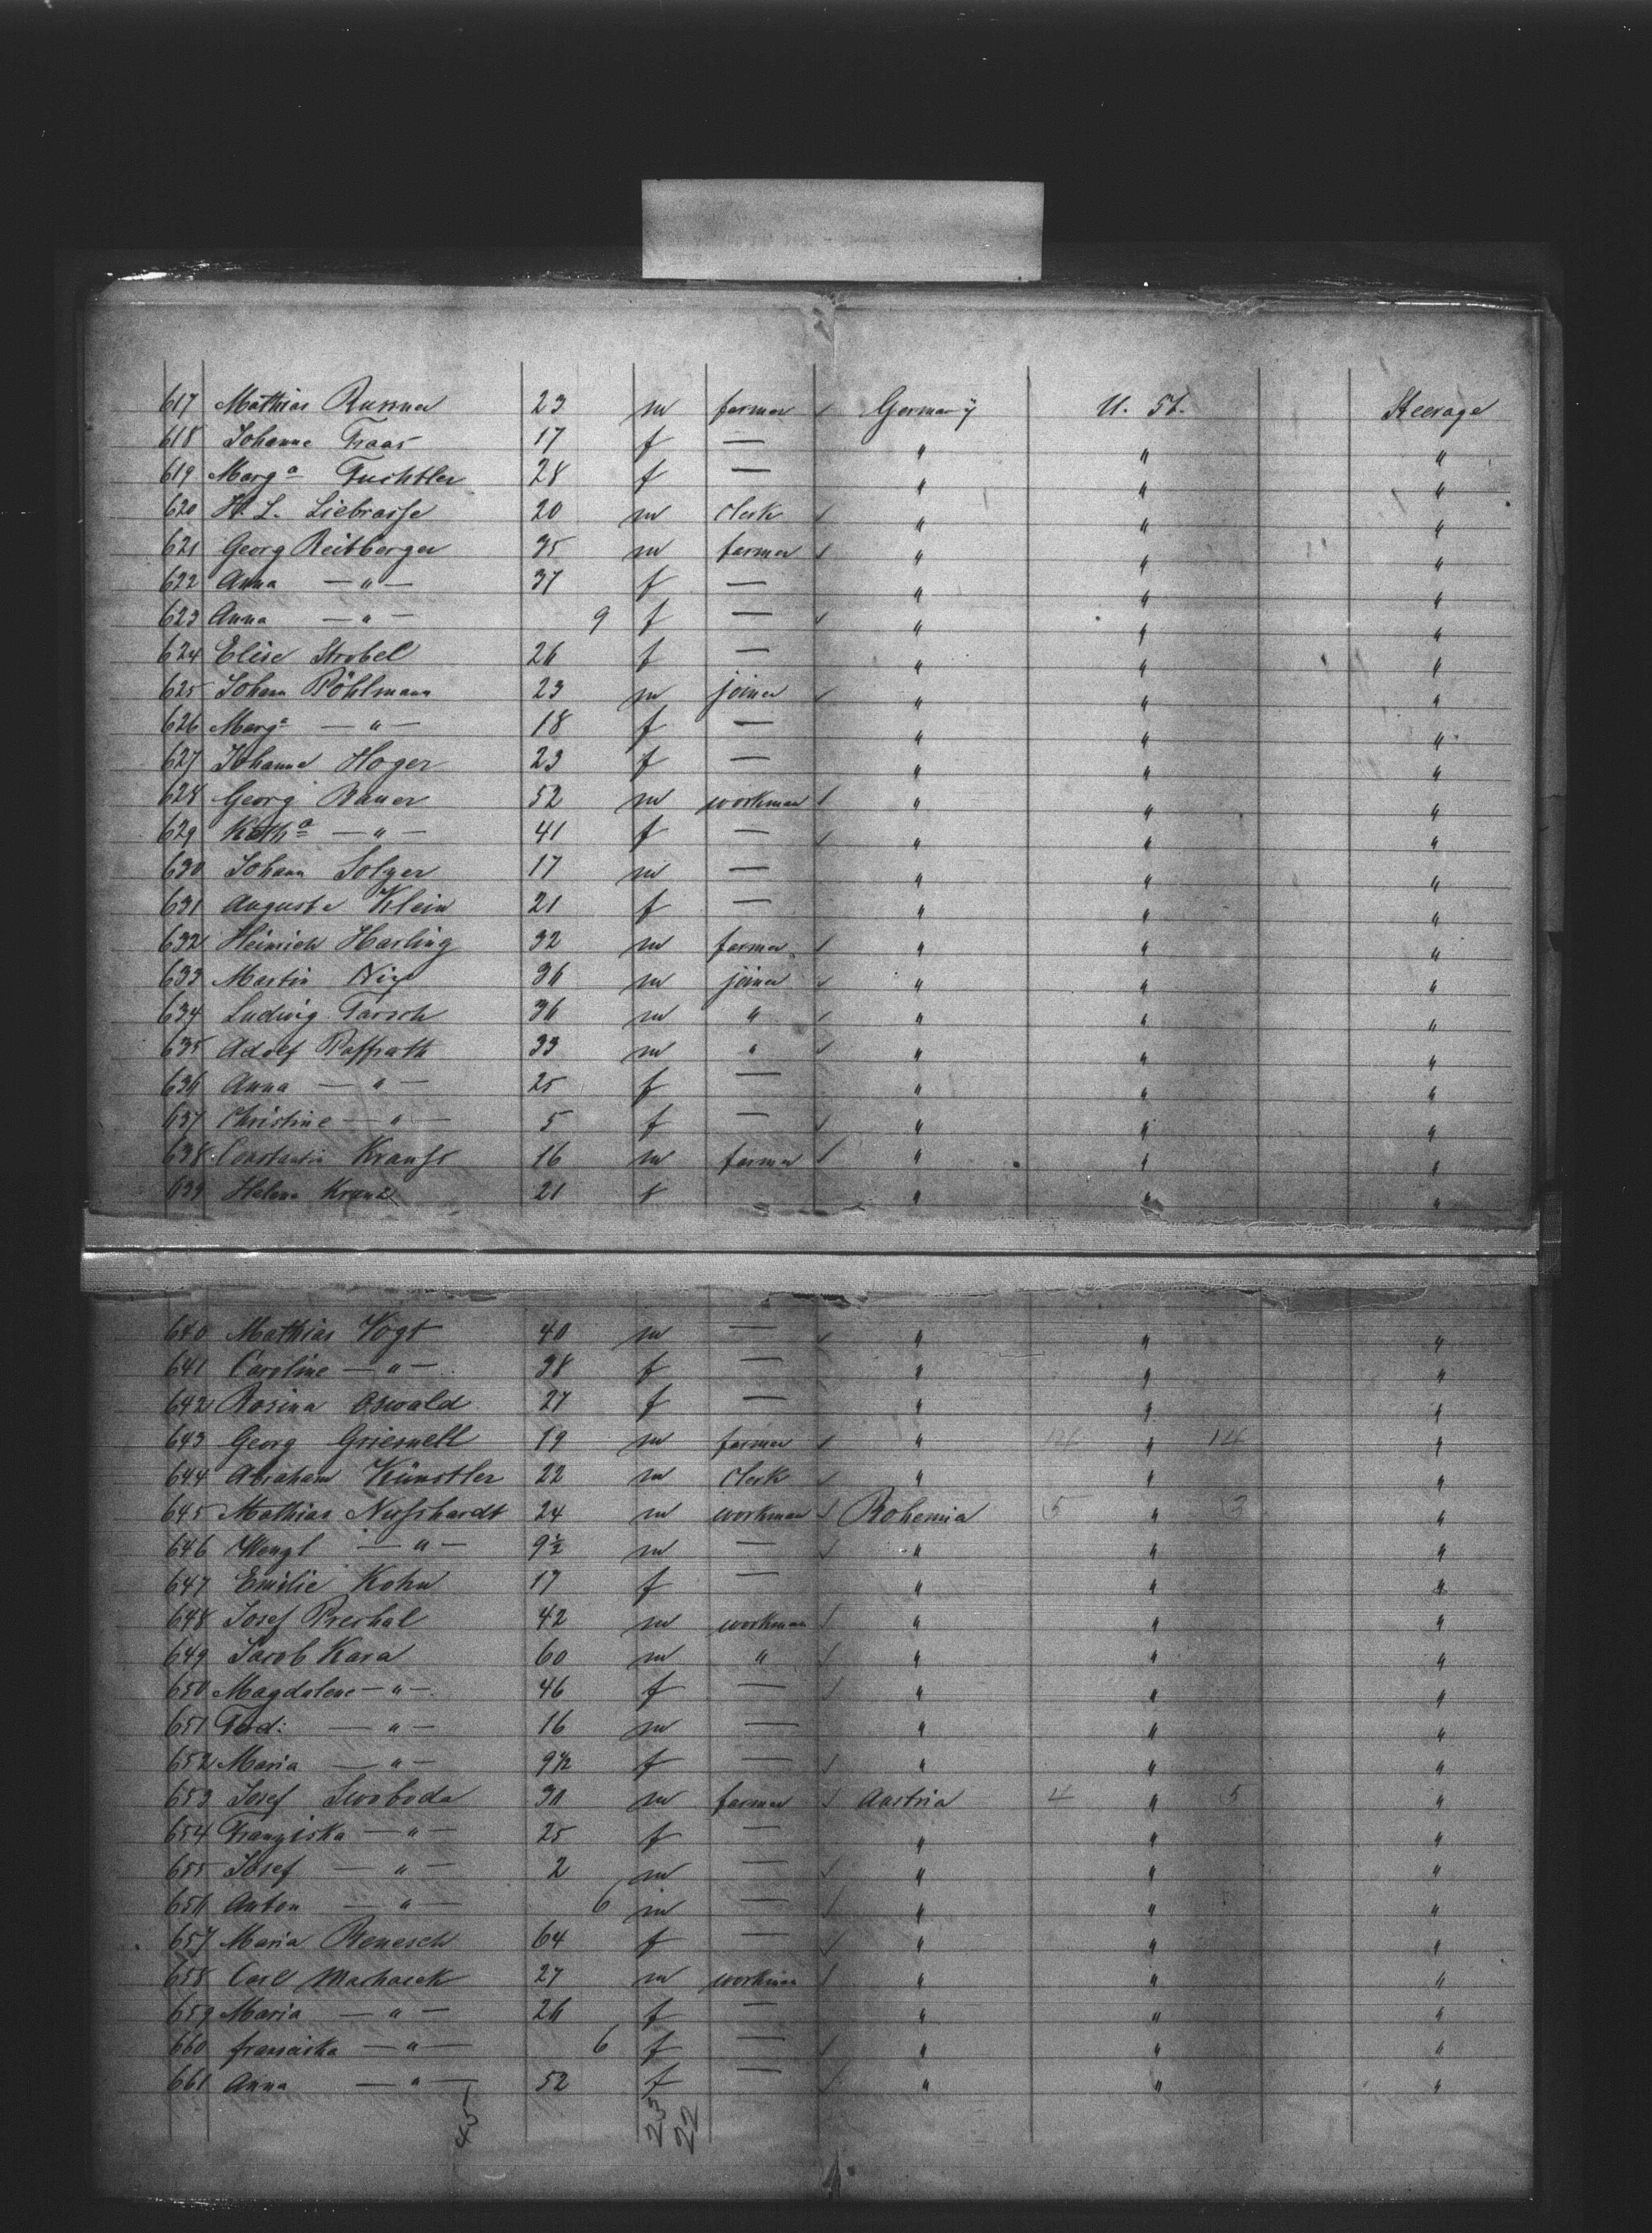 617 Mathias Russner 23 m farmer Germany U. St. Steerage
618 Johanne Fraas 17 f — " " "
619 Marga Fuchtler 28 f — " " "
620 H. L. Liebrasse 20 m clerk " " "
621 Georg Reitberger 35 m farmer " " "
622 Anna — " — 37 f — " " "
623 Anna — " — 9 f — " " "
624 Elise Strobel 26 f — " " "
625 Johann Pöhlmann 23 m joiner " " "
626 Marga — " — 18 f — " " "
627 Johanne Hoger 23 f — " " "
628 Georg Bauer 52 m workman " " "
629 Katha — " — 41 f — " " "
630 Johann Solger 17 m — " " "
631 Auguste Klein 21 f — " " "
632 Heinrich Harling 32 m farmer " " "
633 Martin 36 m joiner " " "
634 Ludwig Tarsch 36 m " " " "
635 Adolf Paffrath 33 m " " " "
636 Anna — " — 25 f — " " "
637 Christine — " — 5 f — " " "
638 Constantin Krauss 16 m farmer " " "
639 Helene Kranz 21 f " " "
640 Mathias Vogt 40 m — " " "
641 Caroline — " — 38 f — " " "
642 Rosina Oswald 27 f — " " "
643 Georg Griesnell 19 m farmer " 14 " 14 "
644 Abraham Künstler 22 m clerk " " "
645 Mathias Nusshardt 24 m workman Bohemia 5 " 3 "
646 Wenzl — " — 9½ m — " " "
647 Emilie Kohn 17 f — " " "
648 Josef Preshal 42 m workman " " "
649 Jacob Kara 60 m " " " "
650 Magdalene — " — 46 f — " " "
651 Ferd: — " — 16 m — " " "
652 Maria — " — 9½ f — " " "
653 Josef Swoboda 30 m farmer Austria 4 " 5 "
654 Franziska — " — 25 f — " " "
655 Josef — " — 2 m — " " "
656 Anton — " — 6 m — " " "
657 Maria Benesch 64 f — " " "
658 Carl Machacek 27 m workman " " "
659 Maria — " — 26 f — " " "
660 franciska — " — 6 f — " " "
661 Anna — " — 52 f — " " "
45 23 22